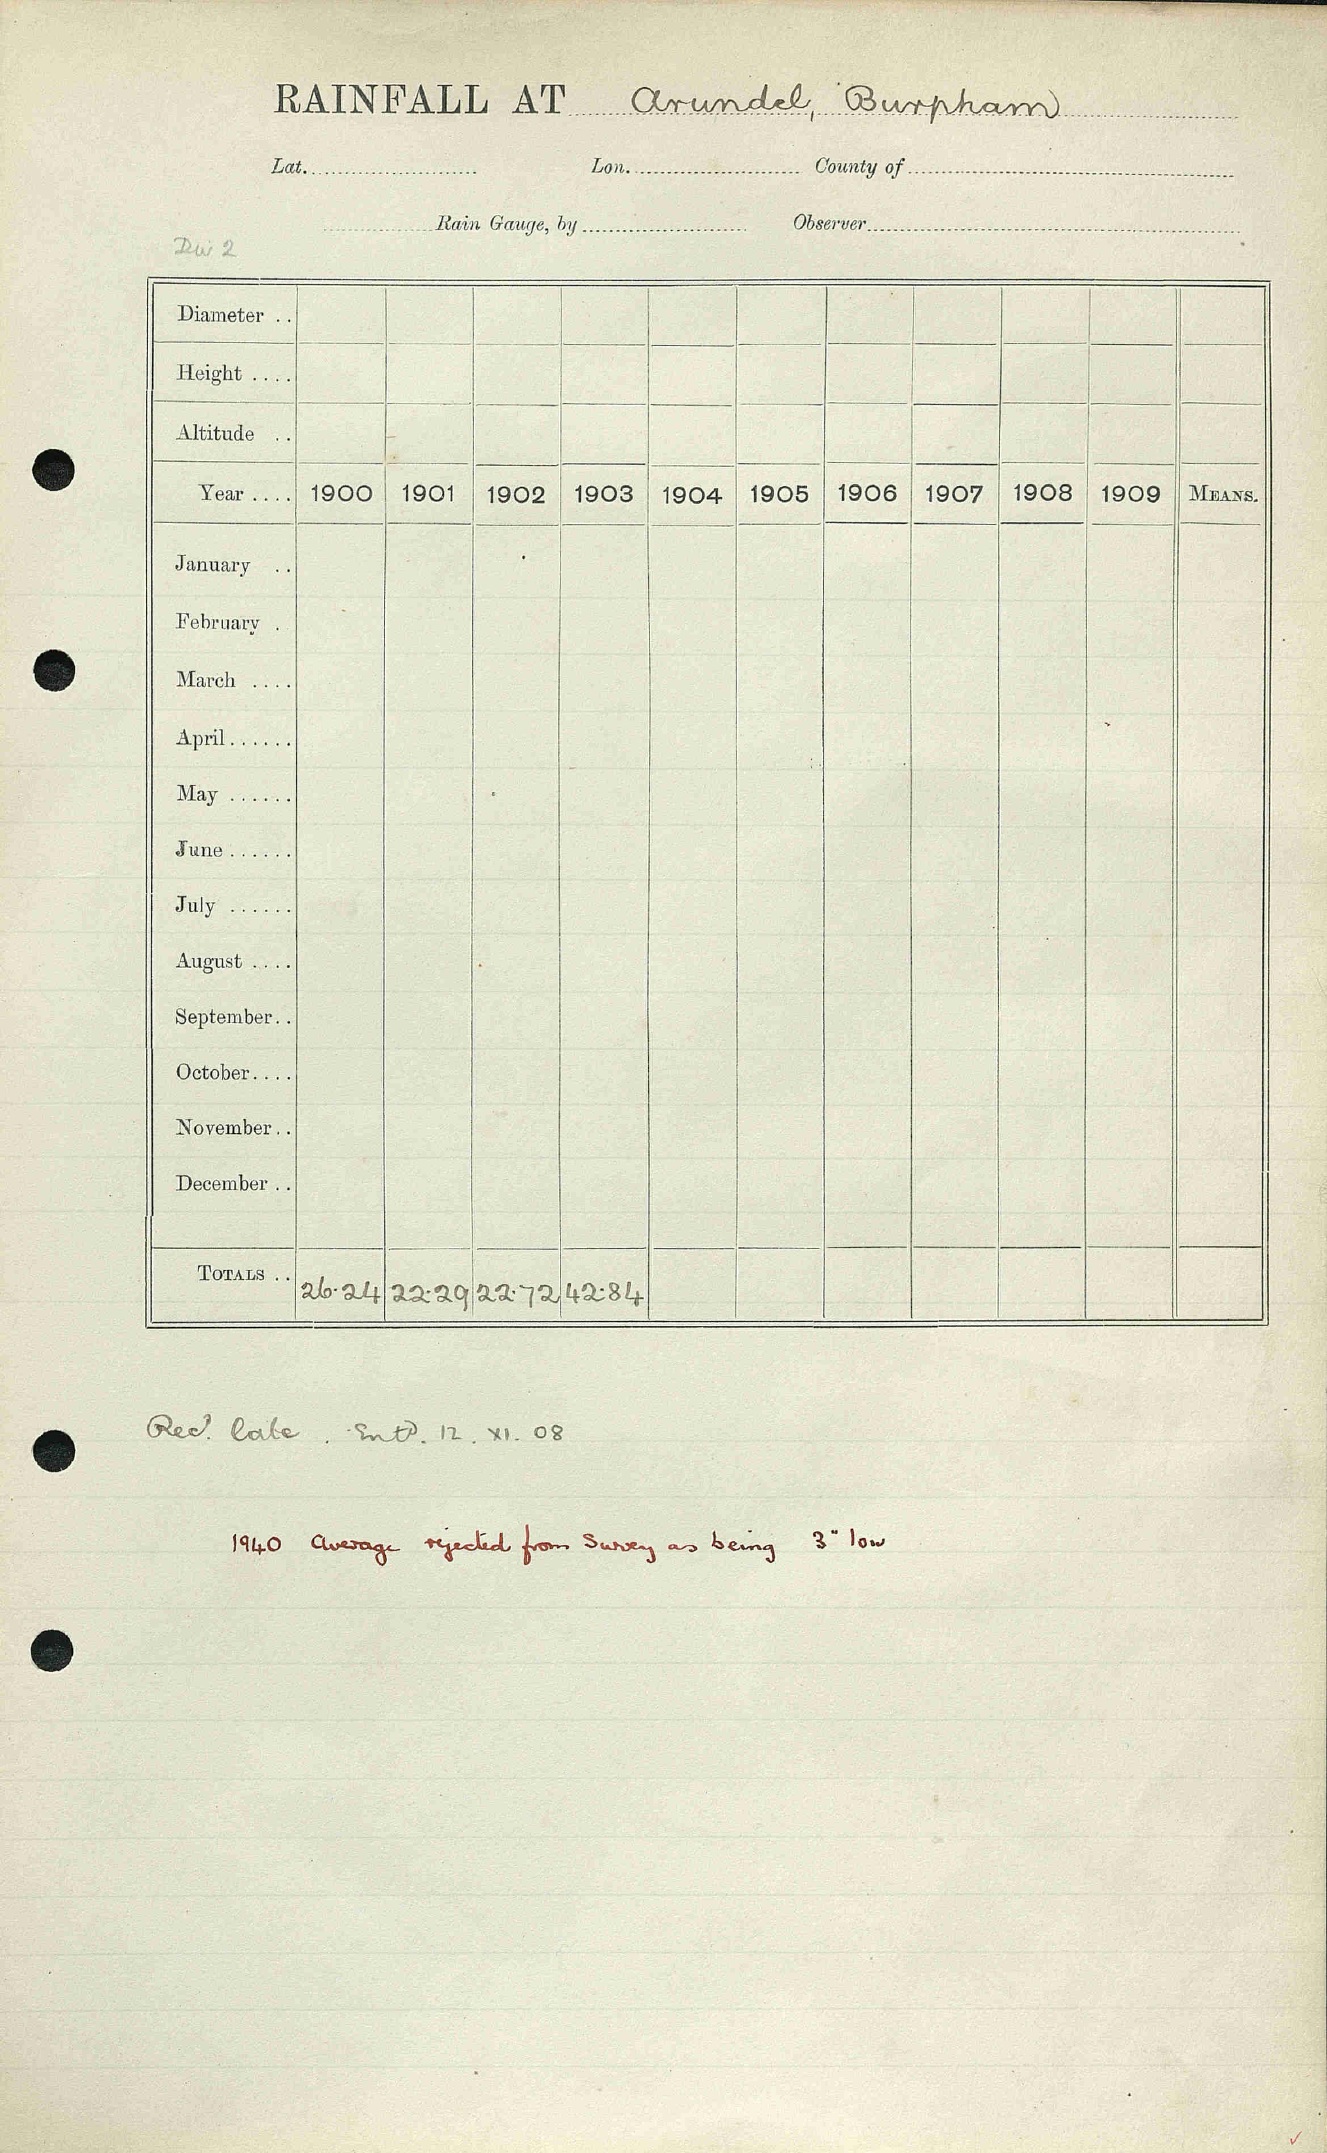 RAINFALL AT Arundel, Burpham
Lat. Lon. County of
Rain Gauge, by Observer
Div 2
Diameter ..
Height ....
Altitude ..
Year .... 1900 1901 1902 1903 1904 1905 1906 1907 1908 1909 MEANS.
January ..
February .
March ....
April......
May ......
June ......
July ......
August ....
September..
October....
November..
December ..
TOTALS .. 26.24 22.29 22.72 42.84
Recd. late. Entd. 12. XI. 08
1940 Average rejected from Survey as being 3" low